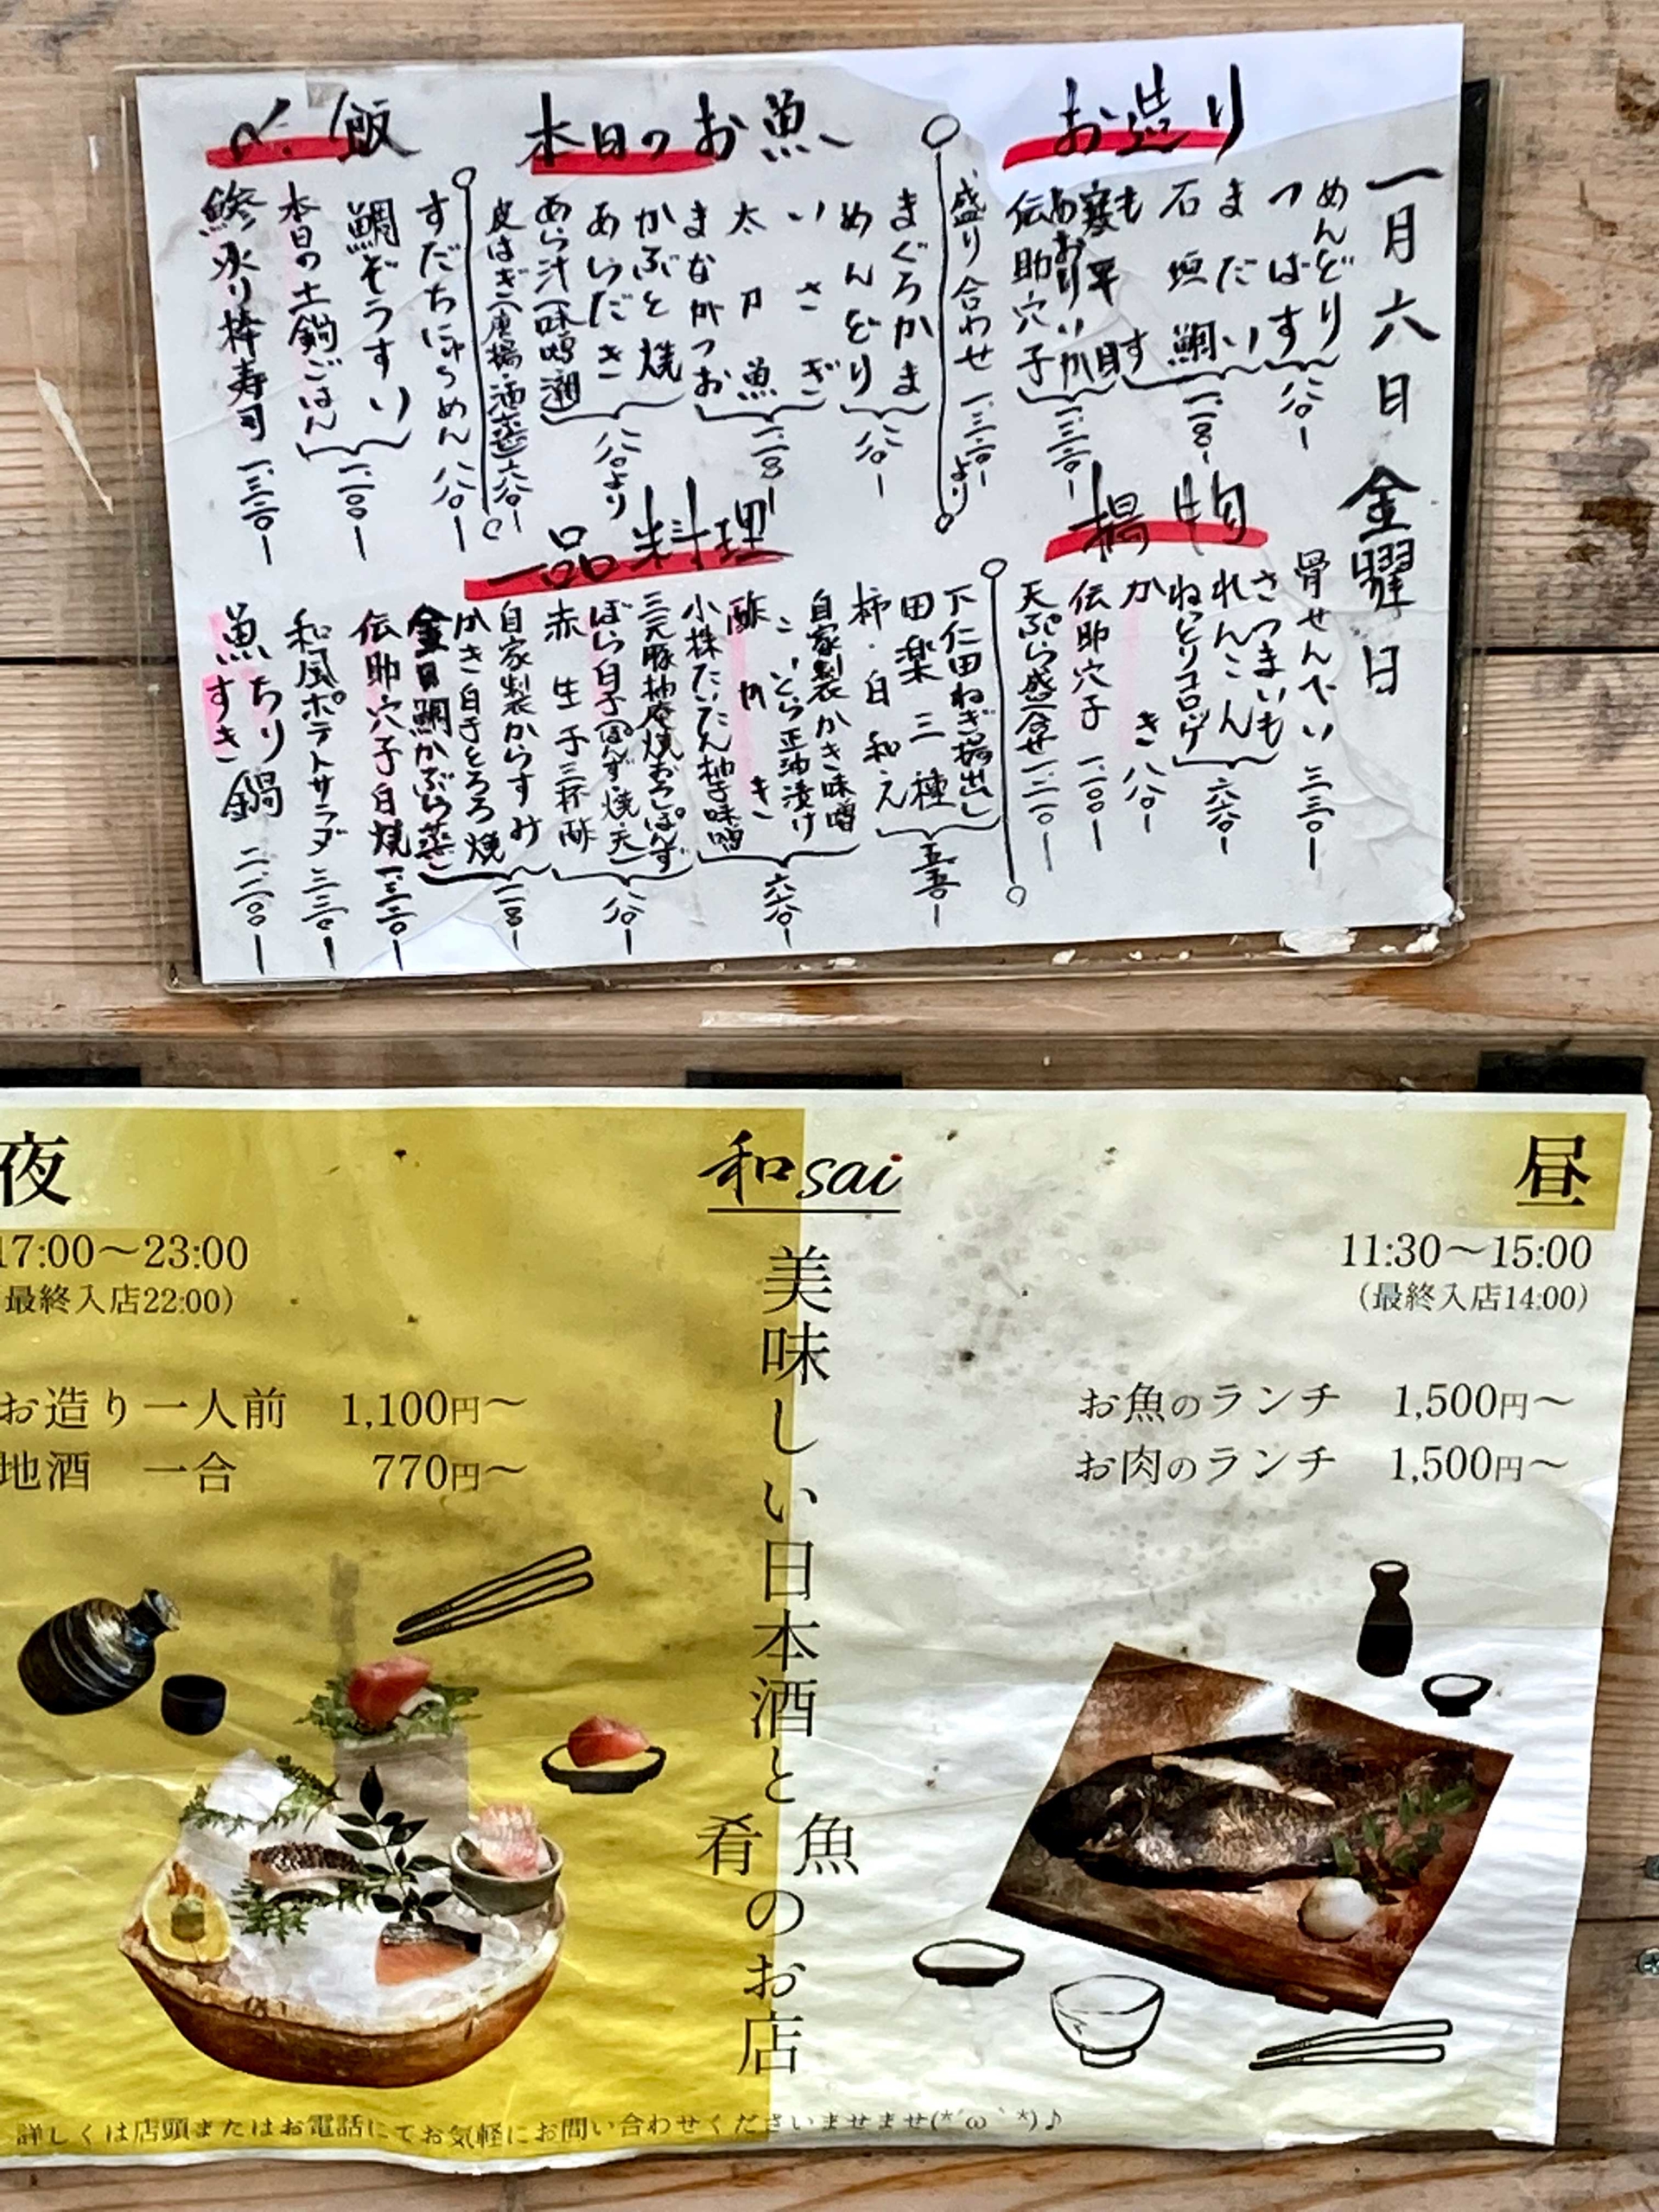 一月六日 金曜日
お造り
めんどり
つばす
八八〇ー
まだい
石垣鯛
もす
一一〇〇ー
寒平目
あおりいか
伝助穴子
一三二〇ー
盛り合わせ 一三二〇より
揚物
骨せんべい 三三〇ー
さつまいも
れんこん
ねっとりコロッケ
六六〇ー
かき 八八〇ー
伝助穴子 一一〇〇ー
天ぷら盛合せ
本日のお魚
まぐろかま
めんどり
八八〇ー
いさぎ
太刀魚
まながつお
一一〇〇
かぶと焼
あらだき
あら汁(味噌・潮)
八八〇より
皮はぎ(唐揚・酒蒸) 六六〇ー
一品料理
下仁田ねぎ揚出し
田楽三種
柿・白和え
五五〇ー
自家製かき味噌
こいくら正油漬け
酢がき
小株たいたん柚子味噌
六六〇ー
三元豚柚庵焼おろしぽんず
ぼら白子(ぽんず・焼・天)
赤生子三杯酢
八八〇ー
自家製からすみ
かき白子とろろ焼
金目鯛かぶら蒸し
一一〇〇ー
伝助穴子白焼 一三二〇ー
和風ポテトサラダ 三三〇ー
魚ちり
魚すき
鍋 二二〇〇ー
〆飯
すだちにゅうめん 八八〇ー
鯛ぞうすい
本日の土鍋ごはん
一一〇〇ー
鯵炙り棒寿司 一三二〇ー
和sai
昼
11:30〜15:00
(最終入店14:00)
お魚のランチ 1,500円〜
お肉のランチ 1,500円〜
美味しい日本酒と魚肴のお店
夜
17:00〜23:00
(最終入店22:00)
お造り一人前 1,100円〜
地酒 一合 770円〜
詳しくは店頭またはお電話にてお気軽にお問い合わせくださいませませ(*´ω｀*)♪